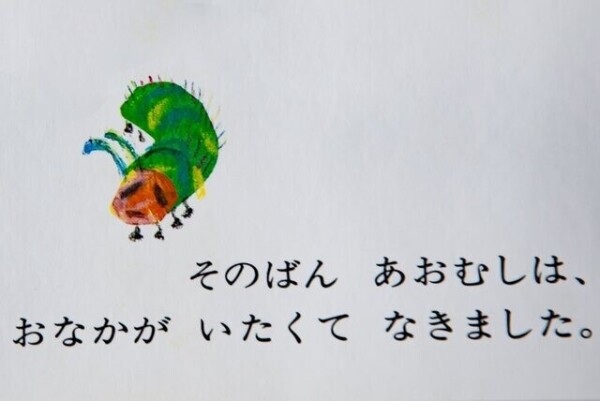 そのばん　あおむしは、
おなかが　いたくて　なきました。